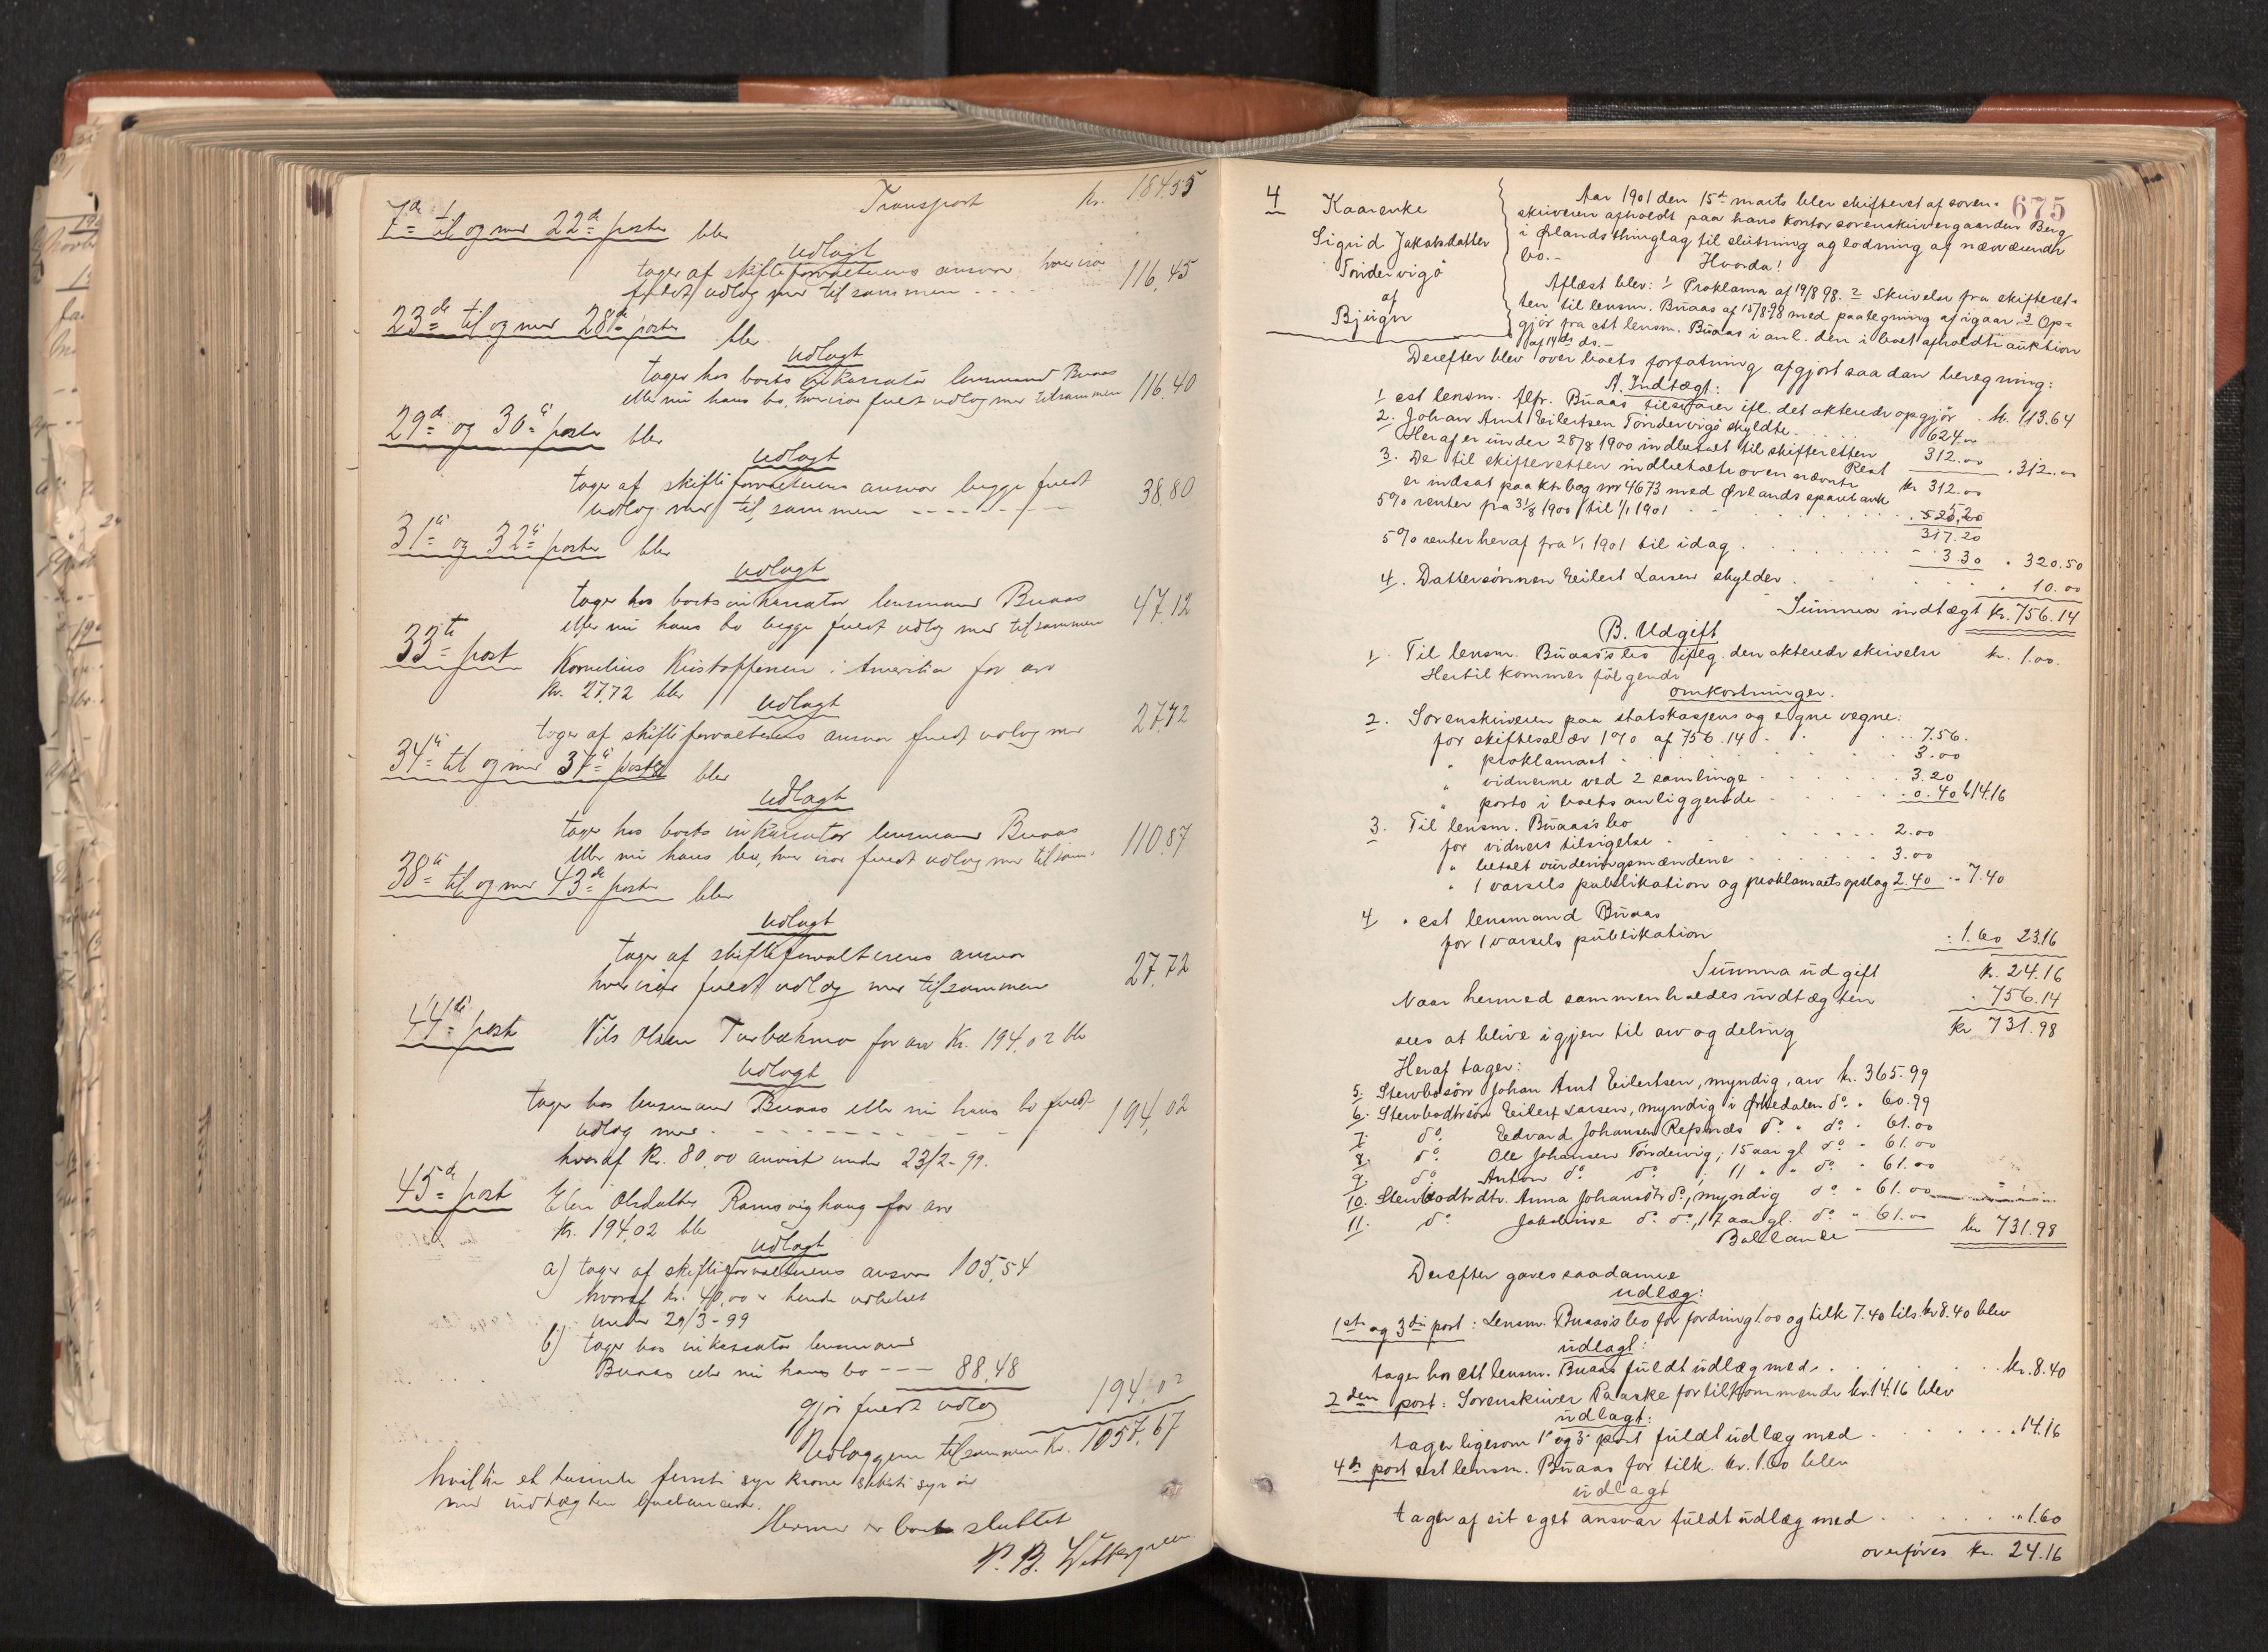 Transport kr. 184.55
7de til og med 22de poster blev
udlagt
tager af skifteforvalterens ansvar hver især
fuldt udlæg med tilsammen 116,45
23de til og med 28de poster blev
udlagt
tager hos boets inkassator lensmand Buaas
eller nu hans bo, hver især fuldt udlæg med tilsammen 116.40
29de og 30te poster blev
udlagt
tager af skifteforvalterens ansvar begge fuldt
udlæg med tilsammen 38.80
31te og 32te poster blev
udlagt
tager hos boets inkassator lensmand Buaas
eller nu hans bo begge fuldt udlæg med tilsammen 47.12
33te post Kornelius Kristoffersen i Amerika for arv
kr. 27.72 blev
udlagt
tager af skifteforvalterens ansvar fuldt udlæg med 27.72
34te til og med 37te poster blev
udlagt
tager hos boets inkassator lensmand Buaas
eller nu hans bo, hver især fuldt udlæg med tilsam- 110.87
38te til og med 43de poster blev
udlagt
tager af skifteforvalterens ansvar
hver især fuldt udlæg med tilsammen 27.72
44de post Nils Olsen for arv kr. 194,02 blev
udlagt
tager hos lensmand Buaas eller nu hans bo fuldt
udlæg med 194,02
hvoraf kr. 80,00 anvist under 23/2-99.
45de post Elen Olsdatter Ramsvighaug for arv
kr. 194,02 blev
udlagt
a) tager af skifteforvalterens ansvar 105,54
hvoraf kr. 40,00 er hende udbetalt
under 29/3-99
b) tager hos inkassator lensmand
Buaas eller nu hans bo --- 88,48
gjør fuldt udlæg 194,02
Udlæggene tilsammen kr. 1057,67
hvilke et tusinde femti syv kroner seksti syv øre
med indtægten balancerer.
Hermed er boet sluttet
P. B. Wettergreen
675
4 Kaarenke
Sigrid Jakobsdatter
Tøndervigø
af
Bjugn
Aar 1901 den 15de marts blev skifteret af soren-
skriveren afholdt paa hans kontor sorenskrivergaarden Berg
i Ørlands thinglag til slutning og lodning af nærværende
bo.- Hvorda!
Aflæst blev: 1 Proklama af 19/8 98. 2 Skrivelse fra skifteret-
ten til lensm. Buaas af 15/8 98 med paategning af igaar. 3 Op-
gjør fra cst lensm. Buaas i anl. den i boet afholdte auktion
af 14ds ds.-
Derefter blev over boets forfatning afgjort saadan beregning:
A. Indtægt:
1 cst lensm. Alfr. Buaas tilsvarer ifl. det akterede opgjør kr. 113.64
2. Johan Arnt Eilertsen Tøndervigø skyldte 624.00
Heraf er under 28/8 1900 indbetalt til skifteretten 312.00
Rest . 312.00
3. De til skifteretten indbetalte ovennævnte kr 312.00
er indsat paa ktr.bog nr 4673 med Ørlands sparebank
5% renter fra 31/8 1900 til 1/1 1901 5.20
317.20
5% renter heraf fra 1/1 1901 til idag . 3.30 . 320.50
4. Dattersønnen Eilert Larsen skylder . 10.00
Summa indtægt kr. 756.14
B. Udgift
1. Til lensm. Buaas's bo ifølg. den akterede skrivelse kr. 1.00.
Hertil kommer følgende
omkostninger.
2. Sorenskriveren paa statskassens og egne vegne:
for skiftesalær 1% af 756.14 . 7.56.
" proklamaet . 3.00
" vidnerne ved 2 samlinge . 3.20
" porto i boets anliggende . 0.40 kr 14.16
3. Til lensm. Buaas's bo
for vidners tilsigelse . 2.00
" betalt vurderingsmændene . 3.00
" 1 varsels publikation og proklamaets opslag 2.40 " 7.40
4 . cst lensmand Buaas
for 1 varsels publikation " 1.60 23.16
Summa udgift kr. 24.16
Naar hermed sammenholdes indtægten . 756.14
sees at blive igjen til arv og deling kr 731.98
Heraf tager:
5. Stervbosøn Johan Arnt Eilertsen, myndig, arv kr. 365.99
6. Stervbodtrsøn Eilert Larsen, myndig i Ørkedalen do. " 60.99
7. do. Edvard Johansen Refsnes do. " do. " 61.00
8. do. Ole Johansen Tøndervig, 15 aar gl do " 61.00
9. do. Anton do. do. ; 11 " " do. " 61.00
10. Stervbodtrdtr. Anna Johansdtr do., myndig do " 61.00
11. do. Jakobine do. do., 17 aar gl. do " 61.00 kr 731.98
Ballance
Derefter gaves saadanne
udlæg:
1ste og 3die post: Lensm. Buaas's bo for fordring 1.00 og tilk 7.40 tils. kr 8.40 blev
udlagt:
tager hos cst lensm. Buaas fuldt udlæg med . kr. 8.40
2den post: Sorenskriver Paaske for tilkommende kr. 14.16 blev
udlagt:
tager ligesom 1ste og 3die post fuldt udlæg med . 14.16
4de post cst lensm. Buaas for tilk. kr. 1.60 blev
udlagt
tager af sit eget ansvar fuldt udlæg med . " 1.60
overføres kr. 24.16